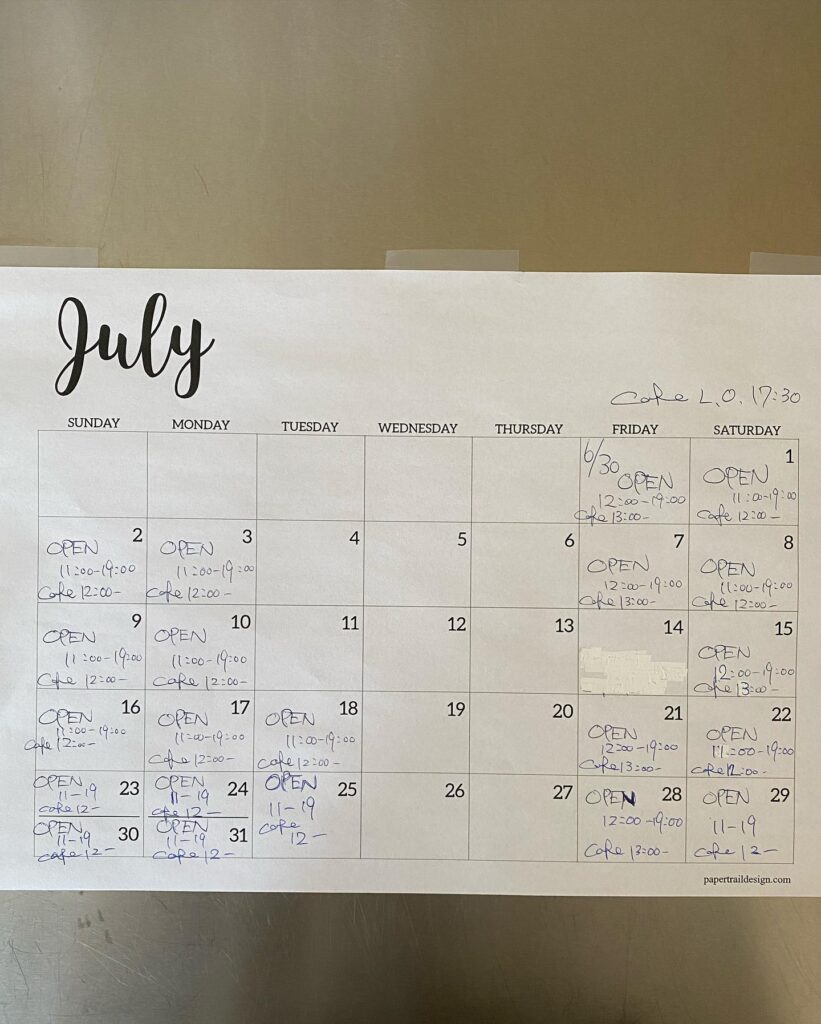 July
Cafe L.O. 17:30
SUNDAY MONDAY TUESDAY WEDNESDAY THURSDAY FRIDAY SATURDAY
6/30
OPEN
12:00-19:00
Cafe 13:00-
1
OPEN
11:00-19:00
Cafe 12:00-
2
OPEN
11:00-19:00
Cafe 12:00-
3
OPEN
11:00-19:00
Cafe 12:00-
4
5
6
7
OPEN
12:00-19:00
Cafe 13:00-
8
OPEN
11:00-19:00
Cafe 12:00-
9
OPEN
11:00-19:00
Cafe 12:00-
10
OPEN
11:00-19:00
Cafe 12:00-
11
12
13
14
15
OPEN
12:00-19:00
Cafe 13:00-
16
OPEN
11:00-19:00
Cafe 12:00-
17
OPEN
11:00-19:00
Cafe 12:00-
18
OPEN
11:00-19:00
Cafe 12:00-
19
20
21
OPEN
12:00-19:00
Cafe 13:00-
22
OPEN
11:00-19:00
Cafe 12:00-
23
OPEN
11-19
Cafe 12-
24
OPEN
11-19
Cafe 12-
25
OPEN
11-19
Cafe
12-
26
27
28
OPEN
12:00-19:00
Cafe 13:00-
29
OPEN
11-19
Cafe 12-
30
OPEN
11-19
Cafe 12-
31
OPEN
11-19
Cafe 12-
papertraildesign.com